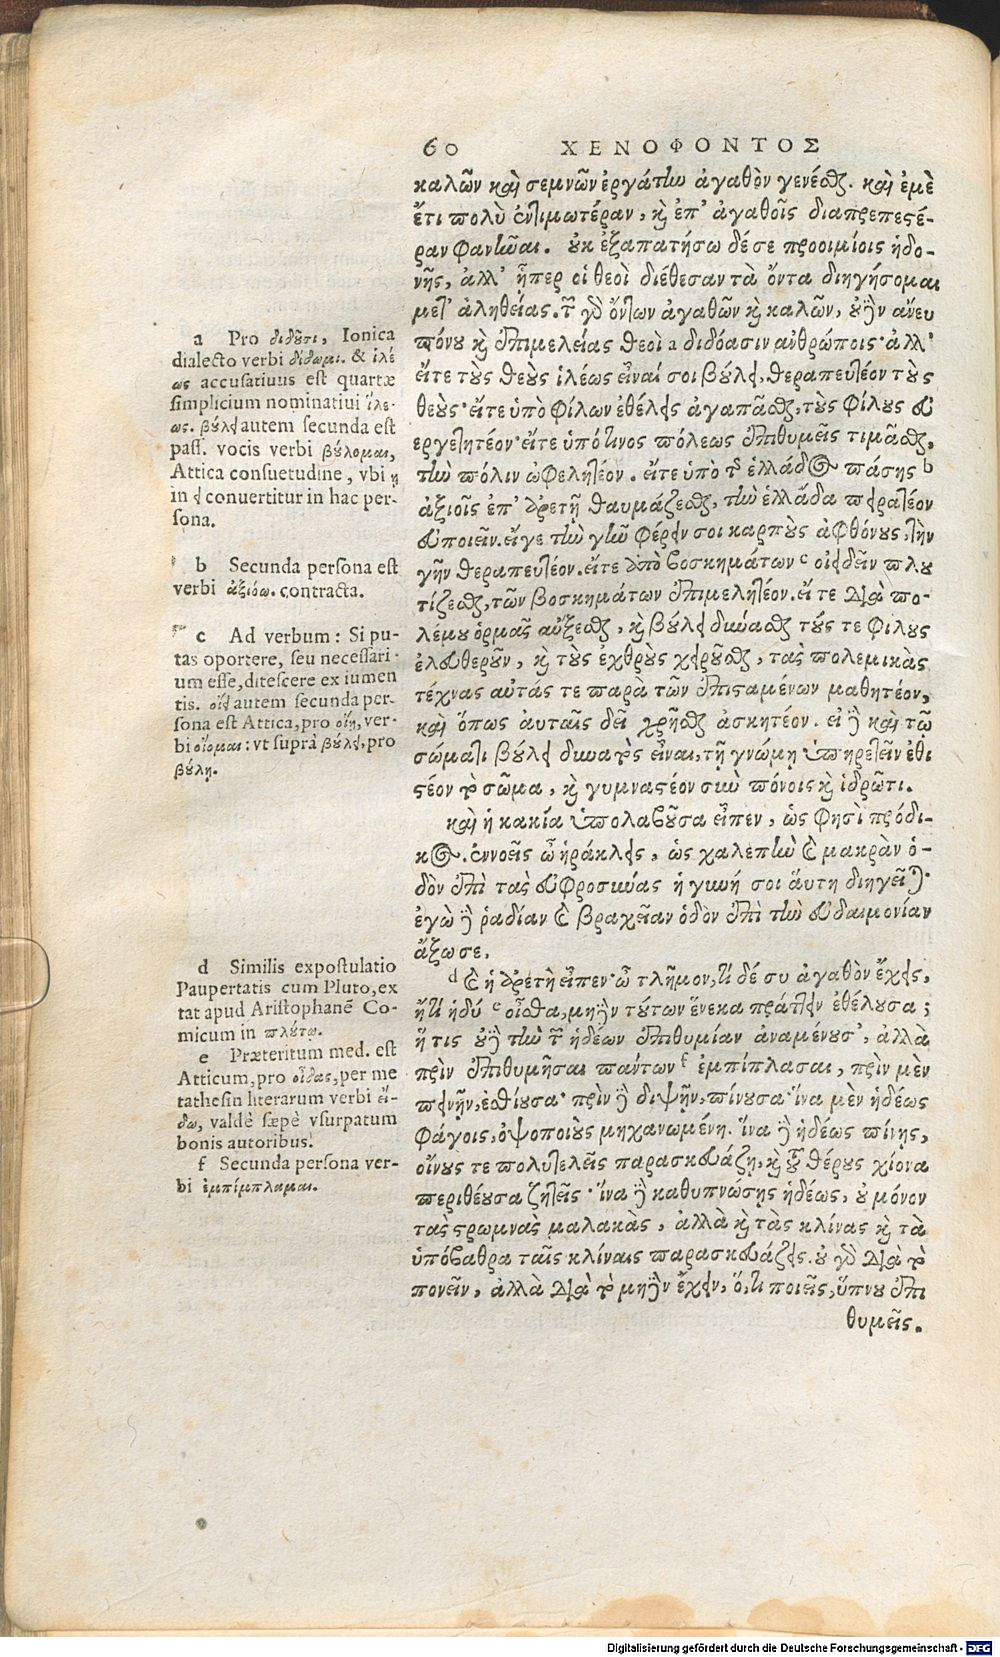 60 ΧΕΝΟΦΟΝΤΟΣ
καλῶν καὶ σεμνῶν ἐργάτην ἀγαθὸν γενέσθαι. καὶ ἐμὲ
ἔτι πολὺ ἐντιμωτέραν, καὶ ἐπ' ἀγαθοῖς διαπρεπεστέ-
ραν φανῆναι. οὐκ ἐξαπατήσω δέ σε προοιμίοις ἡδο-
νῆς, ἀλλ' ᾗπερ οἱ θεοὶ διέθεσαν τὰ ὄντα διηγήσομαι
μετ' ἀληθείας. τῶν γὰρ ὄντων ἀγαθῶν καὶ καλῶν, οὐδὲν ἄνευ
πόνου καὶ ἐπιμελείας θεοὶ a διδόασιν ἀνθρώποις· ἀλλ'
εἴτε τοὺς θεοὺς ἱλέως εἶναί σοι βούλει, θεραπευτέον τοὺς
θεούς· εἴτε ὑπὸ φίλων ἐθέλεις ἀγαπᾶσθαι, τοὺς φίλους εὐ
εργετητέον· εἴτε ὑπό τινος πόλεως ἐπιθυμεῖς τιμᾶσθαι,
τὴν πόλιν ὠφελητέον. εἴτε ὑπὸ τῆς ἑλλάδος πάσης b
ἀξιοῖς ἐπ' ἀρετῇ θαυμάζεσθαι, τὴν ἑλλάδα πειρατέον
εὐποιεῖν. εἴγε τὴν γῆν φέρειν σοι καρποὺς ἀφθόνους, τὴν
γῆν θεραπευτέον. εἴτε ἀπὸ βοσκημάτων c οἴει δεῖν πλου
τίζεσθαι, τῶν βοσκημάτων ἐπιμελητέον. εἴτε διὰ πο-
λέμου ὁρμᾷς αὔξεσθαι, καὶ βούλει δύνασθαι τούς τε φίλους
ἐλευθεροῦν, καὶ τοὺς ἐχθροὺς χειροῦσθαι, τὰς πολεμικὰς
τέχνας αὐτάς τε παρὰ τῶν ἐπισταμένων μαθητέον,
καὶ ὅπως αὐταῖς δεῖ χρῆσθαι ἀσκητέον. εἰ δὲ καὶ τῷ
σώματι βούλει δυνατὸς εἶναι, τῇ γνώμῃ ὑπηρετεῖν ἐθι
στέον τὸ σῶμα, καὶ γυμναστέον σὺν πόνοις καὶ ἱδρῶτι.
καὶ ἡ κακία ὑπολαβοῦσα εἶπεν, ὡς φησὶ πρόδι-
κος. ἐννοεῖς ὦ ἡράκλεις, ὡς χαλεπὴν καὶ μακρὰν ὁ-
δὸν ἐπὶ τὰς εὐφροσύνας ἡ γυνή σοι αὕτη διηγεῖται·
ἐγὼ δὲ ῥᾳδίαν καὶ βραχεῖαν ὁδὸν ἐπὶ τὴν εὐδαιμονίαν
ἄξω σε.
d καὶ ἡ ἀρετὴ εἶπεν· ὦ τλῆμον, τί δὲ συ ἀγαθὸν ἔχεις,
ἤ τί ἡδύ e οἶσθα, μηδὲν τούτων ἕνεκα πράττειν ἐθέλουσα;
ἥτις οὐδὲ τὴν τῶν ἡδέων ἐπιθυμίαν ἀναμένουσ', ἀλλὰ
πρὶν ἐπιθυμῆσαι πάντων f ἐμπίπλασαι, πρὶν μὲν
πεινῆν, ἐσθίουσα· πρὶν δὲ διψῆν, πίνουσα· ἵνα μὲν ἡδέως
φάγοις, ὀψοποιοὺς μηχανωμένη. ἵνα δὲ ἡδέως πίνῃς,
οἴνους τε πολυτελεῖς παρασκευάζῃ, καὶ τοῦ θέρους χίονα
περιθέουσα ζητεῖς· ἵνα δὲ καθυπνώσῃς ἡδέως, οὐ μόνον
τὰς στρωμνὰς μαλακὰς, ἀλλὰ καὶ τὰς κλίνας καὶ τὰ
ὑπόβαθρα ταῖς κλίναις παρασκευάζεις. οὐ γὰρ διὰ τὸ
πονεῖν, ἀλλὰ διὰ τὸ μηδὲν ἔχειν, ὅ, τι ποιεῖς, ὕπνου ἐπι
θυμεῖς.
a Pro διδοῦσι, Ionica
dialecto verbi δίδωμι. & ἱλέ
ως accusatiuus est quartæ
simplicium nominatiui ἵλε-
ως. βούλει autem secunda est
pass. vocis verbi βούλομαι,
Attica consuetudine, vbi ῃ
in ει conuertitur in hac per-
sona.
b Secunda persona est
verbi ἀξιόω. contracta.
c Ad verbum: Si pu-
tas oportere, seu necessari-
um esse, ditescere ex iumen
tis. οἴει autem secunda per-
sona est Attica, pro οἴῃ, ver-
bi οἴομαι: vt suprà βούλει, pro
βούλῃ.
d Similis expostulatio
Paupertatis cum Pluto, ex
tat apud Aristophanē Co-
micum in πλούτῳ.
e Præteritum med. est
Atticum, pro οἶδας, per me
tathesin literarum verbi εἴ-
δω, valdè sæpè vsurpatum
bonis autoribus.
f Secunda persona ver-
bi ἐμπίμπλαμαι.
Digitalisierung gefördert durch die Deutsche Forschungsgemeinschaft - DFG